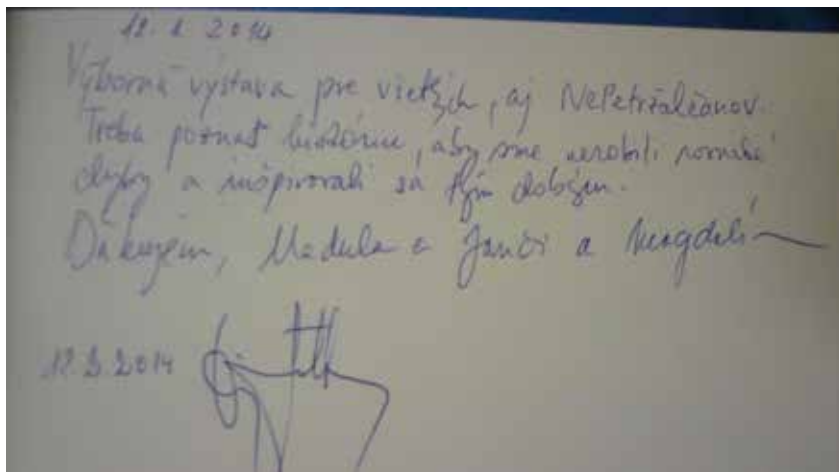 12. 2 2014
Výborná výstava pre všetkých, aj NePetržalčanov.
Treba poznať históriu, aby sme nerobili rovnaké
chyby a inšpirovali sa tým dobrým.
Ďakujem, a Janči a Magdal
12.2.2014